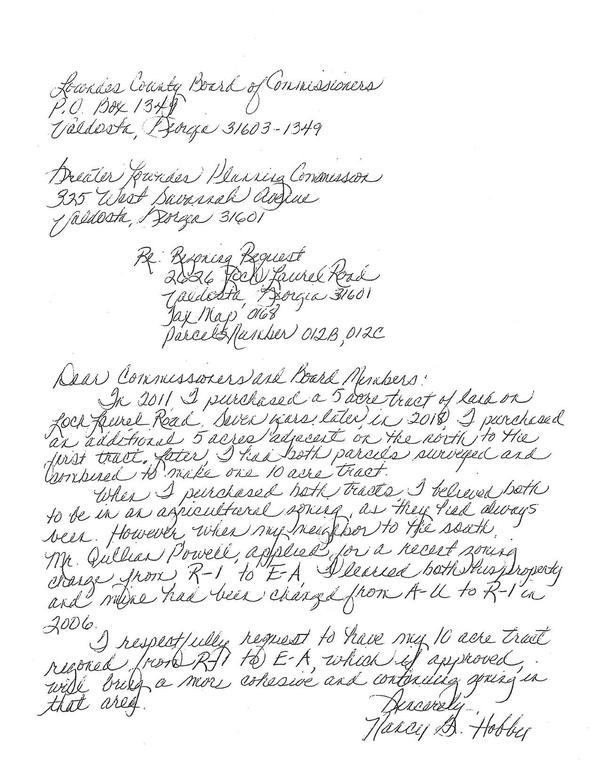 Lowndes County Board of Commissioners
P.O. Box 1349
Valdosta, Georgia 31603-1349
Greater Lowndes Planning Commission
325 West Savannah Avenue
Valdosta, Georgia 31601
Re: Rezoning Request
2626 Loch Laurel Road
Valdosta, Georgia 31601
Tax Map 0168
Parcels Number 012B, 012C
Dear Commissioners and Board Members:
In 2011 I purchased a 5 acre tract of land on
Loch Laurel Road. Seven years later in 2018, I purchased
an additional 5 acres adjacent on the north to the
first tract. Later, I had both parcels surveyed and
combined to make one 10 acre tract.
When I purchased both tracts I believed both
to be in an agricultural zoning, as they had always
been. However when my neighbor to the south,
Mr. Quillian Powell, applied for a recent zoning
change from R-1 to E-A, I learned both his property
and mine had been changed from A-U to R-1 in
2006.
I respectfully request to have my 10 acre tract
rezoned from R-1 to E-A, which if approved,
will bring a more cohesive and continuing zoning in
that area.
Sincerely,
Nancy G. Hobby